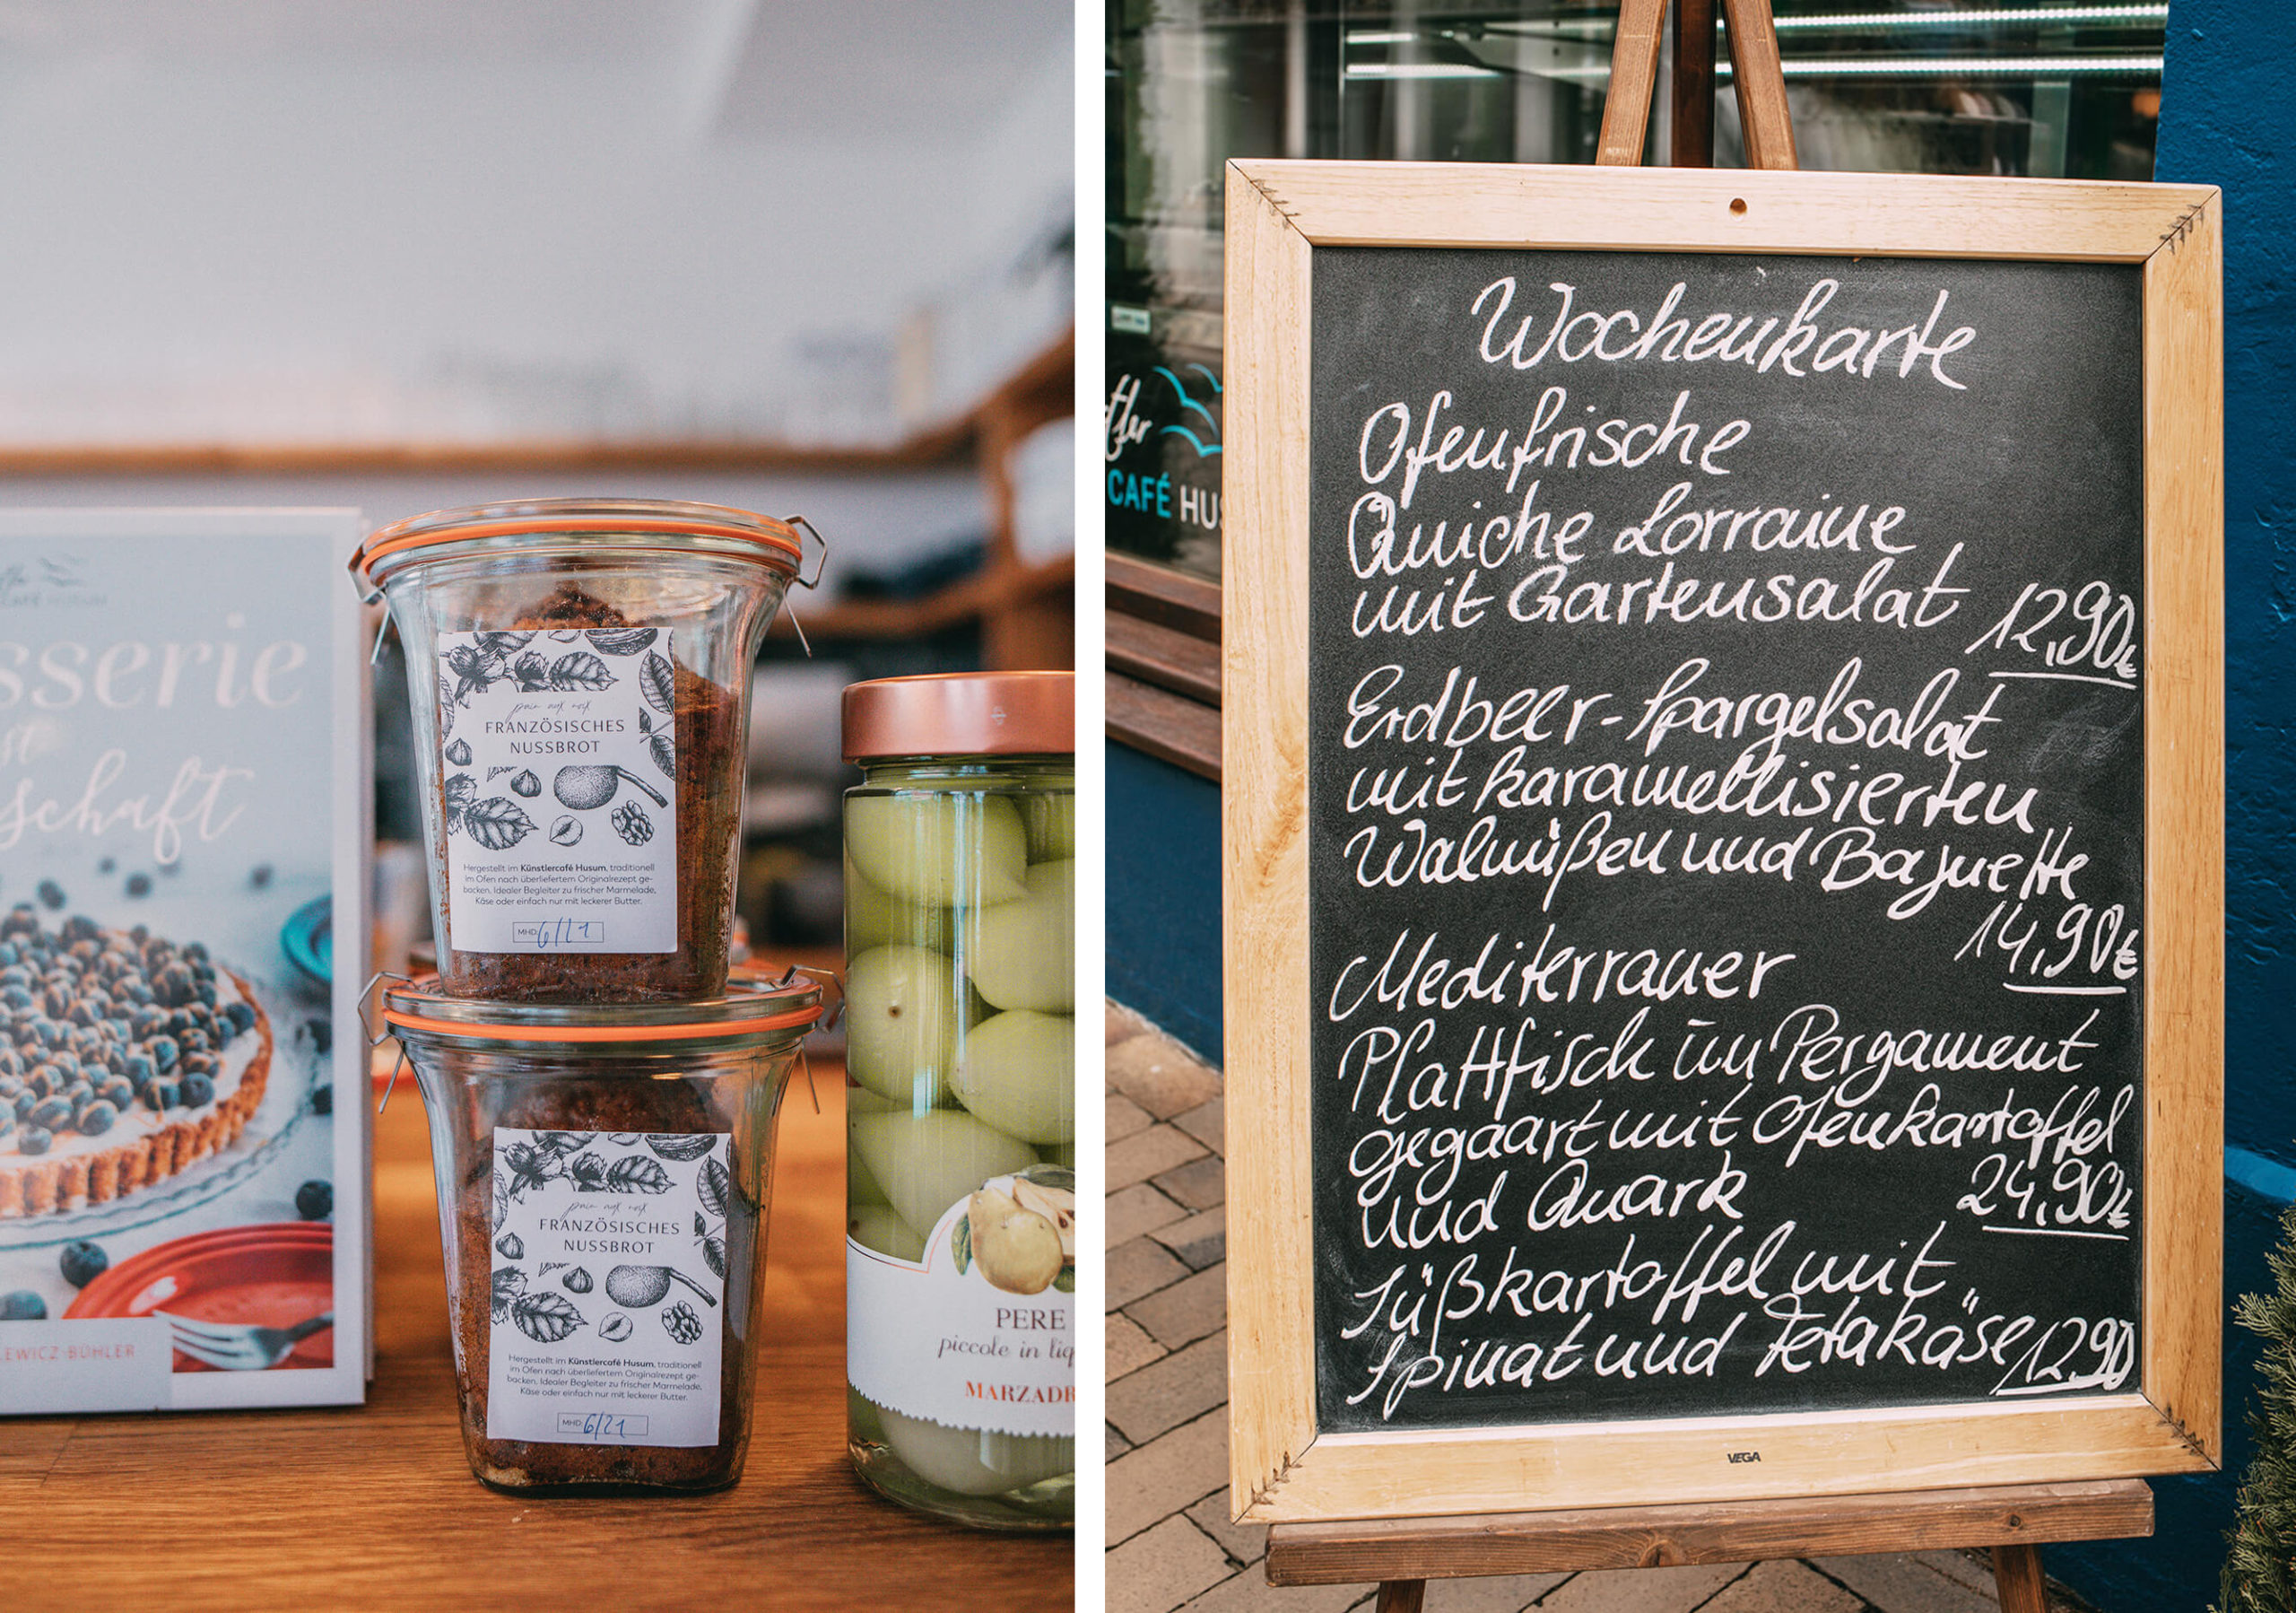 sserie
schaft
EWICZ-BÜHLER
pain aux noix
FRANZÖSISCHES
NUSSBROT
Hergestellt im Künstlercafé Husum, traditionell
im Ofen nach überliefertem Originalrezept ge-
backen. Idealer Begleiter zu frischer Marmelade,
Käse oder einfach nur mit leckerer Butter.
MHD: 6/21
pain aux noix
FRANZÖSISCHES
NUSSBROT
Hergestellt im Künstlercafé Husum, traditionell
im Ofen nach überliefertem Originalrezept ge-
backen. Idealer Begleiter zu frischer Marmelade,
Käse oder einfach nur mit leckerer Butter.
MHD: 6/21
PERE
piccole in liq
MARZADR
tler
CAFÉ HUS
Wochenkarte
Ofenfrische
Quiche Lorraine
mit Gartensalat 12,90€
Erdbeer-Spargelsalat
mit karamellisierten
Walnüßen und Baguette
14,90€
Mediterraner
Plattfisch im Pergament
gegaart mit Ofenkartoffel
und Quark 24,90€
Süßkartoffel mit
Spinat und Fetakäse 12,90
VEGA